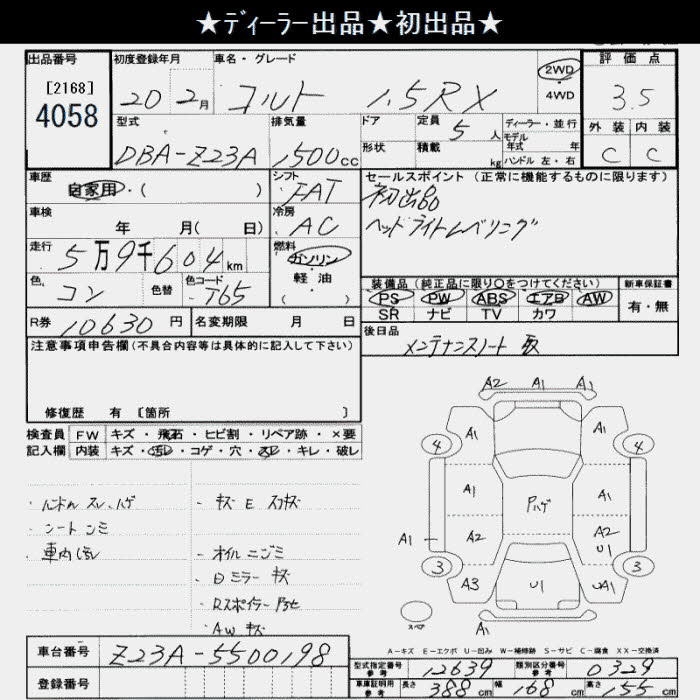 ★ディーラー出品★初出品★
出品番号 初度登録年月 車名・グレード 評価点
[2168]
4058
20 2月 コルト 1.5RX 2WD ・ 4WD 3.5
型式 排気量 ドア 定員 5人 ディーラー・並行 外装 内装
DBA-Z23A 1500cc 形状 積載 kg モデル年式 年 ハンドル 左・右 C C
車歴 シフト セールスポイント (正常に機能するものに限ります)
自家用・( ) FAT 初出品
車検 冷房 ヘッドライトレベリング
年 月( 日) AC
走行 燃料
5万9千604km ガソリン
色 色替 色コード 軽油
コン T65 ( )
装備品 (純正品に限り〇をつけてください) 新車保証書
PS PW ABS エアB AW 有・無
SR ナビ TV カワ
R券 10630円 名変期限 月 日 後日品
メンテナンスノート 取
注意事項申告欄(不具合内容等は具体的に記入して下さい)
修復歴 有 [箇所 ]
検査員 FW キズ・飛石・ヒビ割・リペア跡・×要
記入欄 内装 キズ・汚レ・コゲ・穴・スレ・キレ・破レ
・ハンドル スレ、ハゲ - キズ E スリキズ
・シート シミ
・車内 汚レ - オイルニジミ
- Dミラー キズ
- Rスポイラー
・AW キズ
A2 A1 A1
4 A1 A1 4
A1 Pハゲ A1
A1 A2 A2 U1
3 A3 U1 UA1 3
スペア A1
A-キズ E-エクボ U-凹み W-補修跡 S-サビ C-腐食 XX-交換済
車台番号 Z23A-5500198
登録番号
型式指定番号 参考 12639 類別区分番号 参考 0329
車庫証明用 参考 長さ 388cm 幅 168cm 高さ 155cm